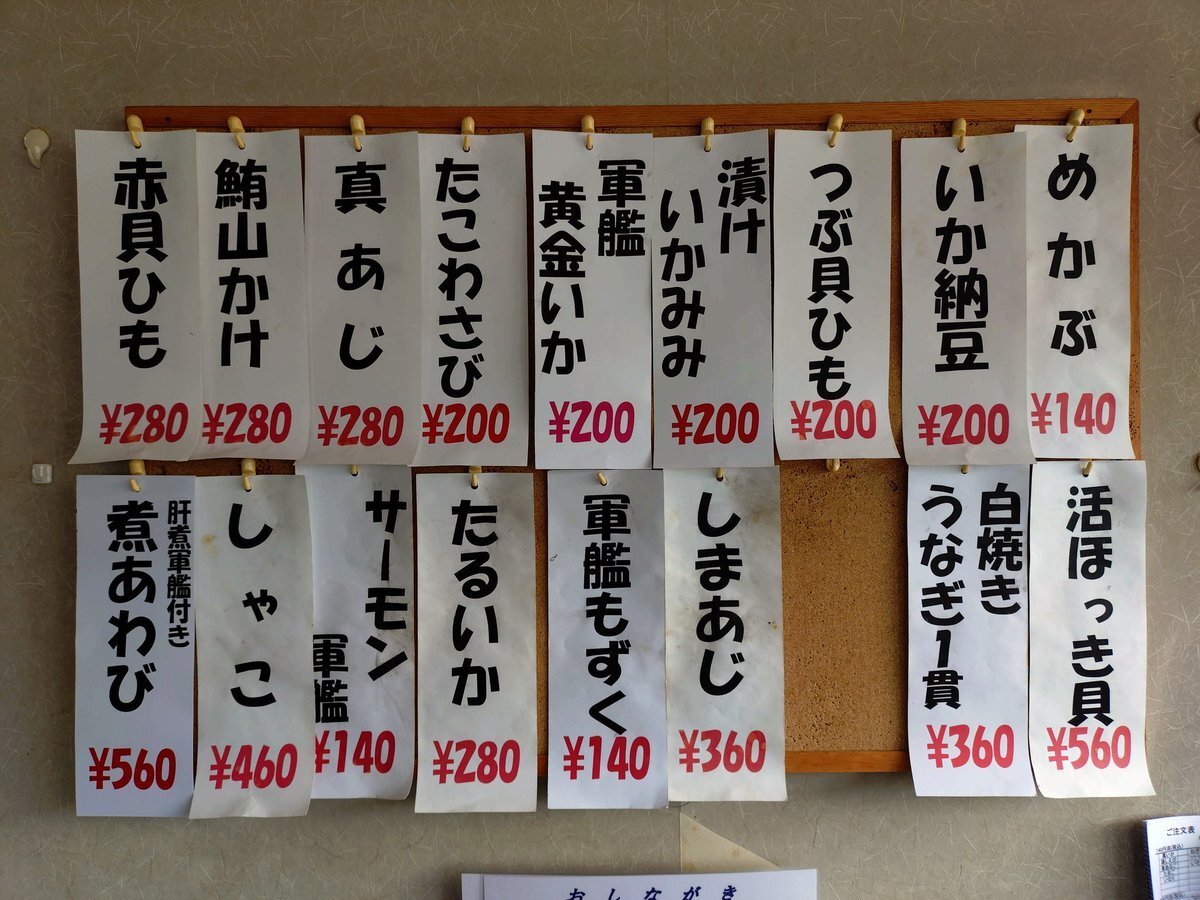 めかぶ
¥140
いか納豆
¥200
つぶ貝ひも
¥200
漬け
いかみみ
¥200
軍艦
黄金いか
¥200
たこわさび
¥200
真あじ
¥280
鮪山かけ
¥280
赤貝ひも
¥280
活ほっき貝
¥560
白焼き
うなぎ1貫
¥360
しまあじ
¥360
軍艦もずく
¥140
たるいか
¥280
サーモン
軍艦
¥140
しゃこ
¥460
肝煮軍艦付き
煮あわび
¥560
おしながき
ご注文表